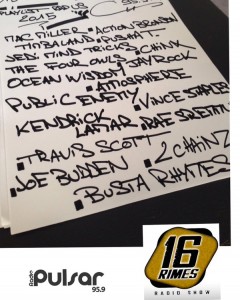 PLAYLIST
2015
MAC MILLER ▪ ACTION BRONSON
TIMBALAND ▪ PUSHA T.
JEDI MIND TRICKS CHINX
THE FOUR OWLS ▪ JAY ROCK
OCEAN WISDOM
▪ ATMOSPHERE
PUBLIC ENEMY
▪ VINCE STAPLES
KENDRICK LAMAR ▪ RAE SREMM
▪ TRAVIS SCOTT
▪ 2 CHAINZ
▪ JOE BUDDEN
▪ BUSTA RHYTES
Radio Pulsar
95.9
16
RIMES
RADIO SHOW